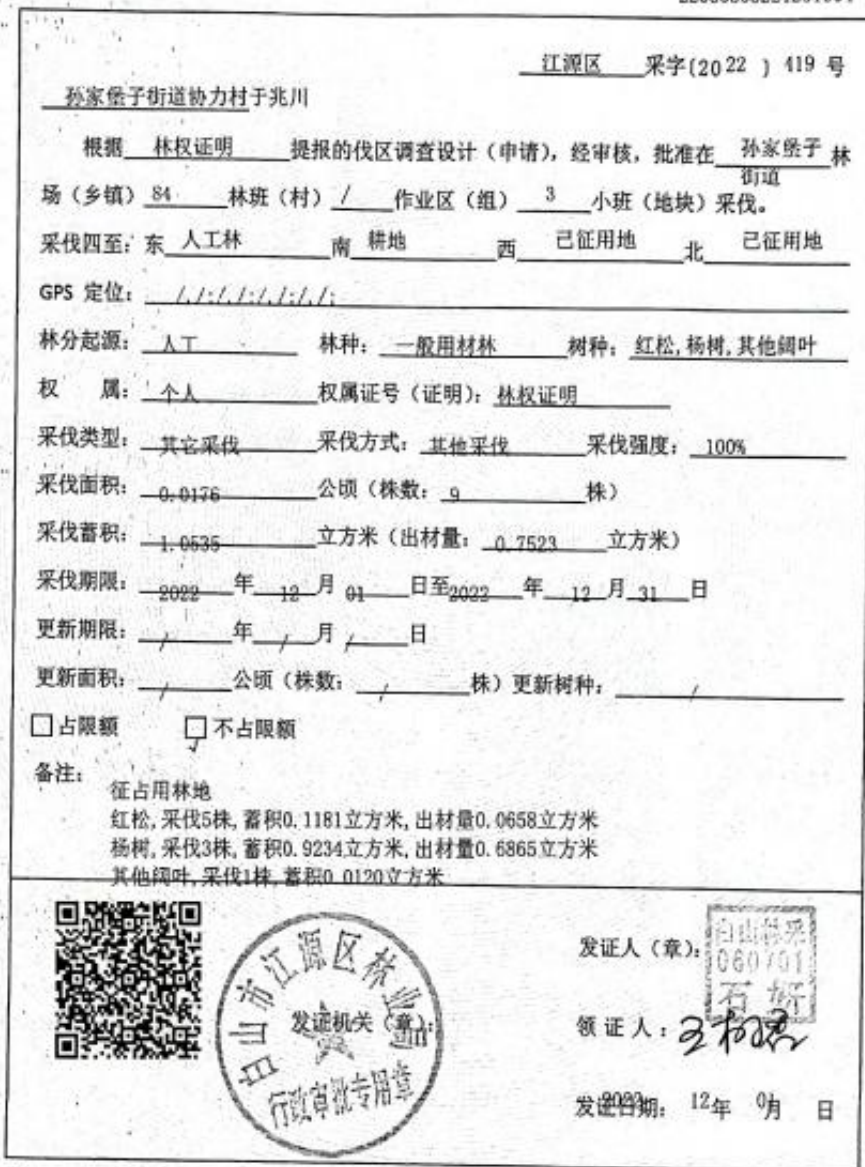 江源区 采字(2022 ) 419 号
孙家堡子街道协力村于兆川
根据 林权证明 提报的伐区调查设计（申请），经审核，批准在 孙家堡子街道 林
场（乡镇）84 林班（村）/ 作业区（组）3 小班（地块）采伐。
采伐四至：东 人工林 南 耕地 西 已征用地 北 已征用地
GPS 定位：/,/;/,/;/,/;/,/;
林分起源：人工 林种：一般用材林 树种：红松,杨树,其他阔叶
权 属：个人 权属证号（证明）：林权证明
采伐类型：其它采伐 采伐方式：其他采伐 采伐强度：100%
采伐面积：0.0176 公顷（株数：9 株）
采伐蓄积：1.0535 立方米（出材量：0.7523 立方米）
采伐期限：2022 年 12 月 01 日至2022 年 12 月 31 日
更新期限：/ 年 / 月 / 日
更新面积：/ 公顷（株数：/ 株）更新树种：/
□占限额 ☑不占限额
备注：
征占用林地
红松,采伐5株,蓄积0.1181立方米,出材量0.0658立方米
杨树,采伐3株,蓄积0.9234立方米,出材量0.6865立方米
其他阔叶,采伐1株,蓄积0.0120立方米
白山市江源区林业局
行政审批专用章
发证机关（章）：
发证人（章）：
白山林采
060701
石妍
领证人：
发证日期：2022 12年 01月 日